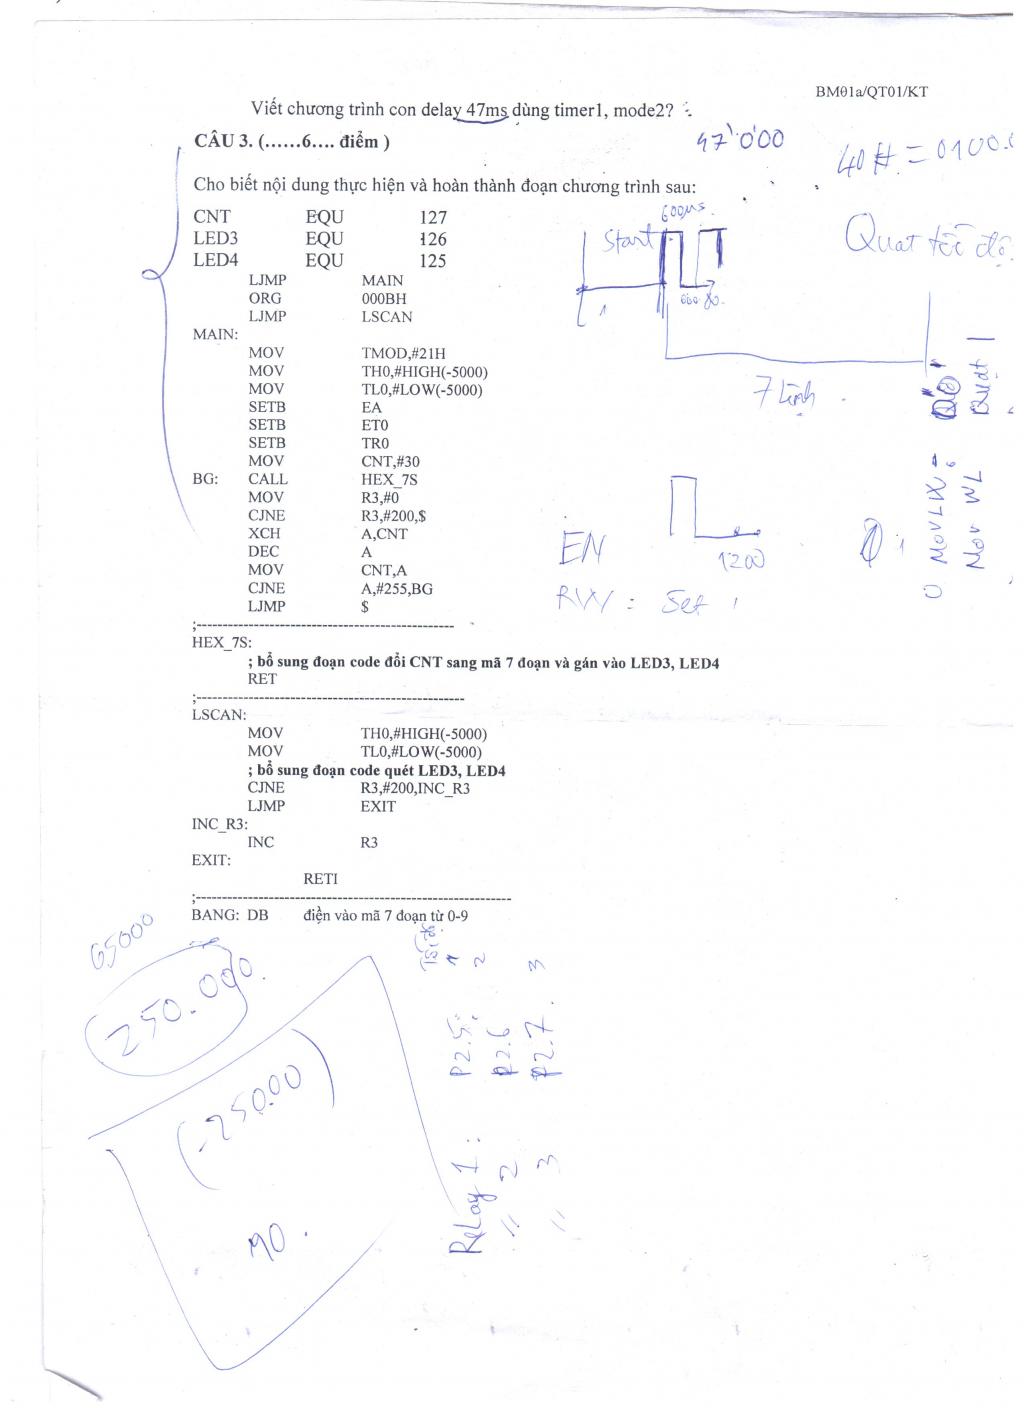 BM01a/QT01/KT
Viết chương trình con delay 47ms dùng timer1, mode2?
CÂU 3. (......6.... điểm )
47'000
40H = 0100.
Cho biết nội dung thực hiện và hoàn thành đoạn chương trình sau:
CNT EQU 127
LED3 EQU 126
LED4 EQU 125
LJMP MAIN
ORG 000BH
LJMP LSCAN
MAIN:
MOV TMOD,#21H
MOV TH0,#HIGH(-5000)
MOV TL0,#LOW(-5000)
SETB EA
SETB ET0
SETB TR0
MOV CNT,#30
BG: CALL HEX_7S
MOV R3,#0
CJNE R3,#200,$
XCH A,CNT
DEC A
MOV CNT,A
CJNE A,#255,BG
LJMP $
;--------------------------------------------------
HEX_7S:
; bổ sung đoạn code đổi CNT sang mã 7 đoạn và gán vào LED3, LED4
RET
;----------------------------------------------------
LSCAN:
MOV TH0,#HIGH(-5000)
MOV TL0,#LOW(-5000)
; bổ sung đoạn code quét LED3, LED4
CJNE R3,#200,INC_R3
LJMP EXIT
INC_R3:
INC R3
EXIT:
RETI
;------------------------------------------------------------
BANG: DB điện vào mã 7 đoạn từ 0-9
600µs
Start
1
Quat tốc độ
7 lệnh
Quạt 1
MOV WL
EN
1200
RW : Set 1
65000
250.000.
(-25000)
90.
Tốc độ
1 2 3
P2.5: P2.6 P2.7
Relay 1 :
" 2
" 3